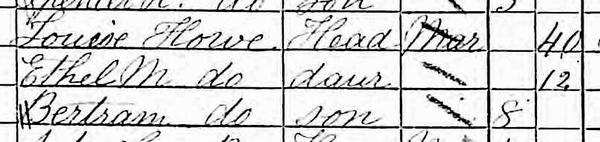 do son 5
Louise Howe Head Mar 40
Ethel M do daur 12
Bertram do son 8